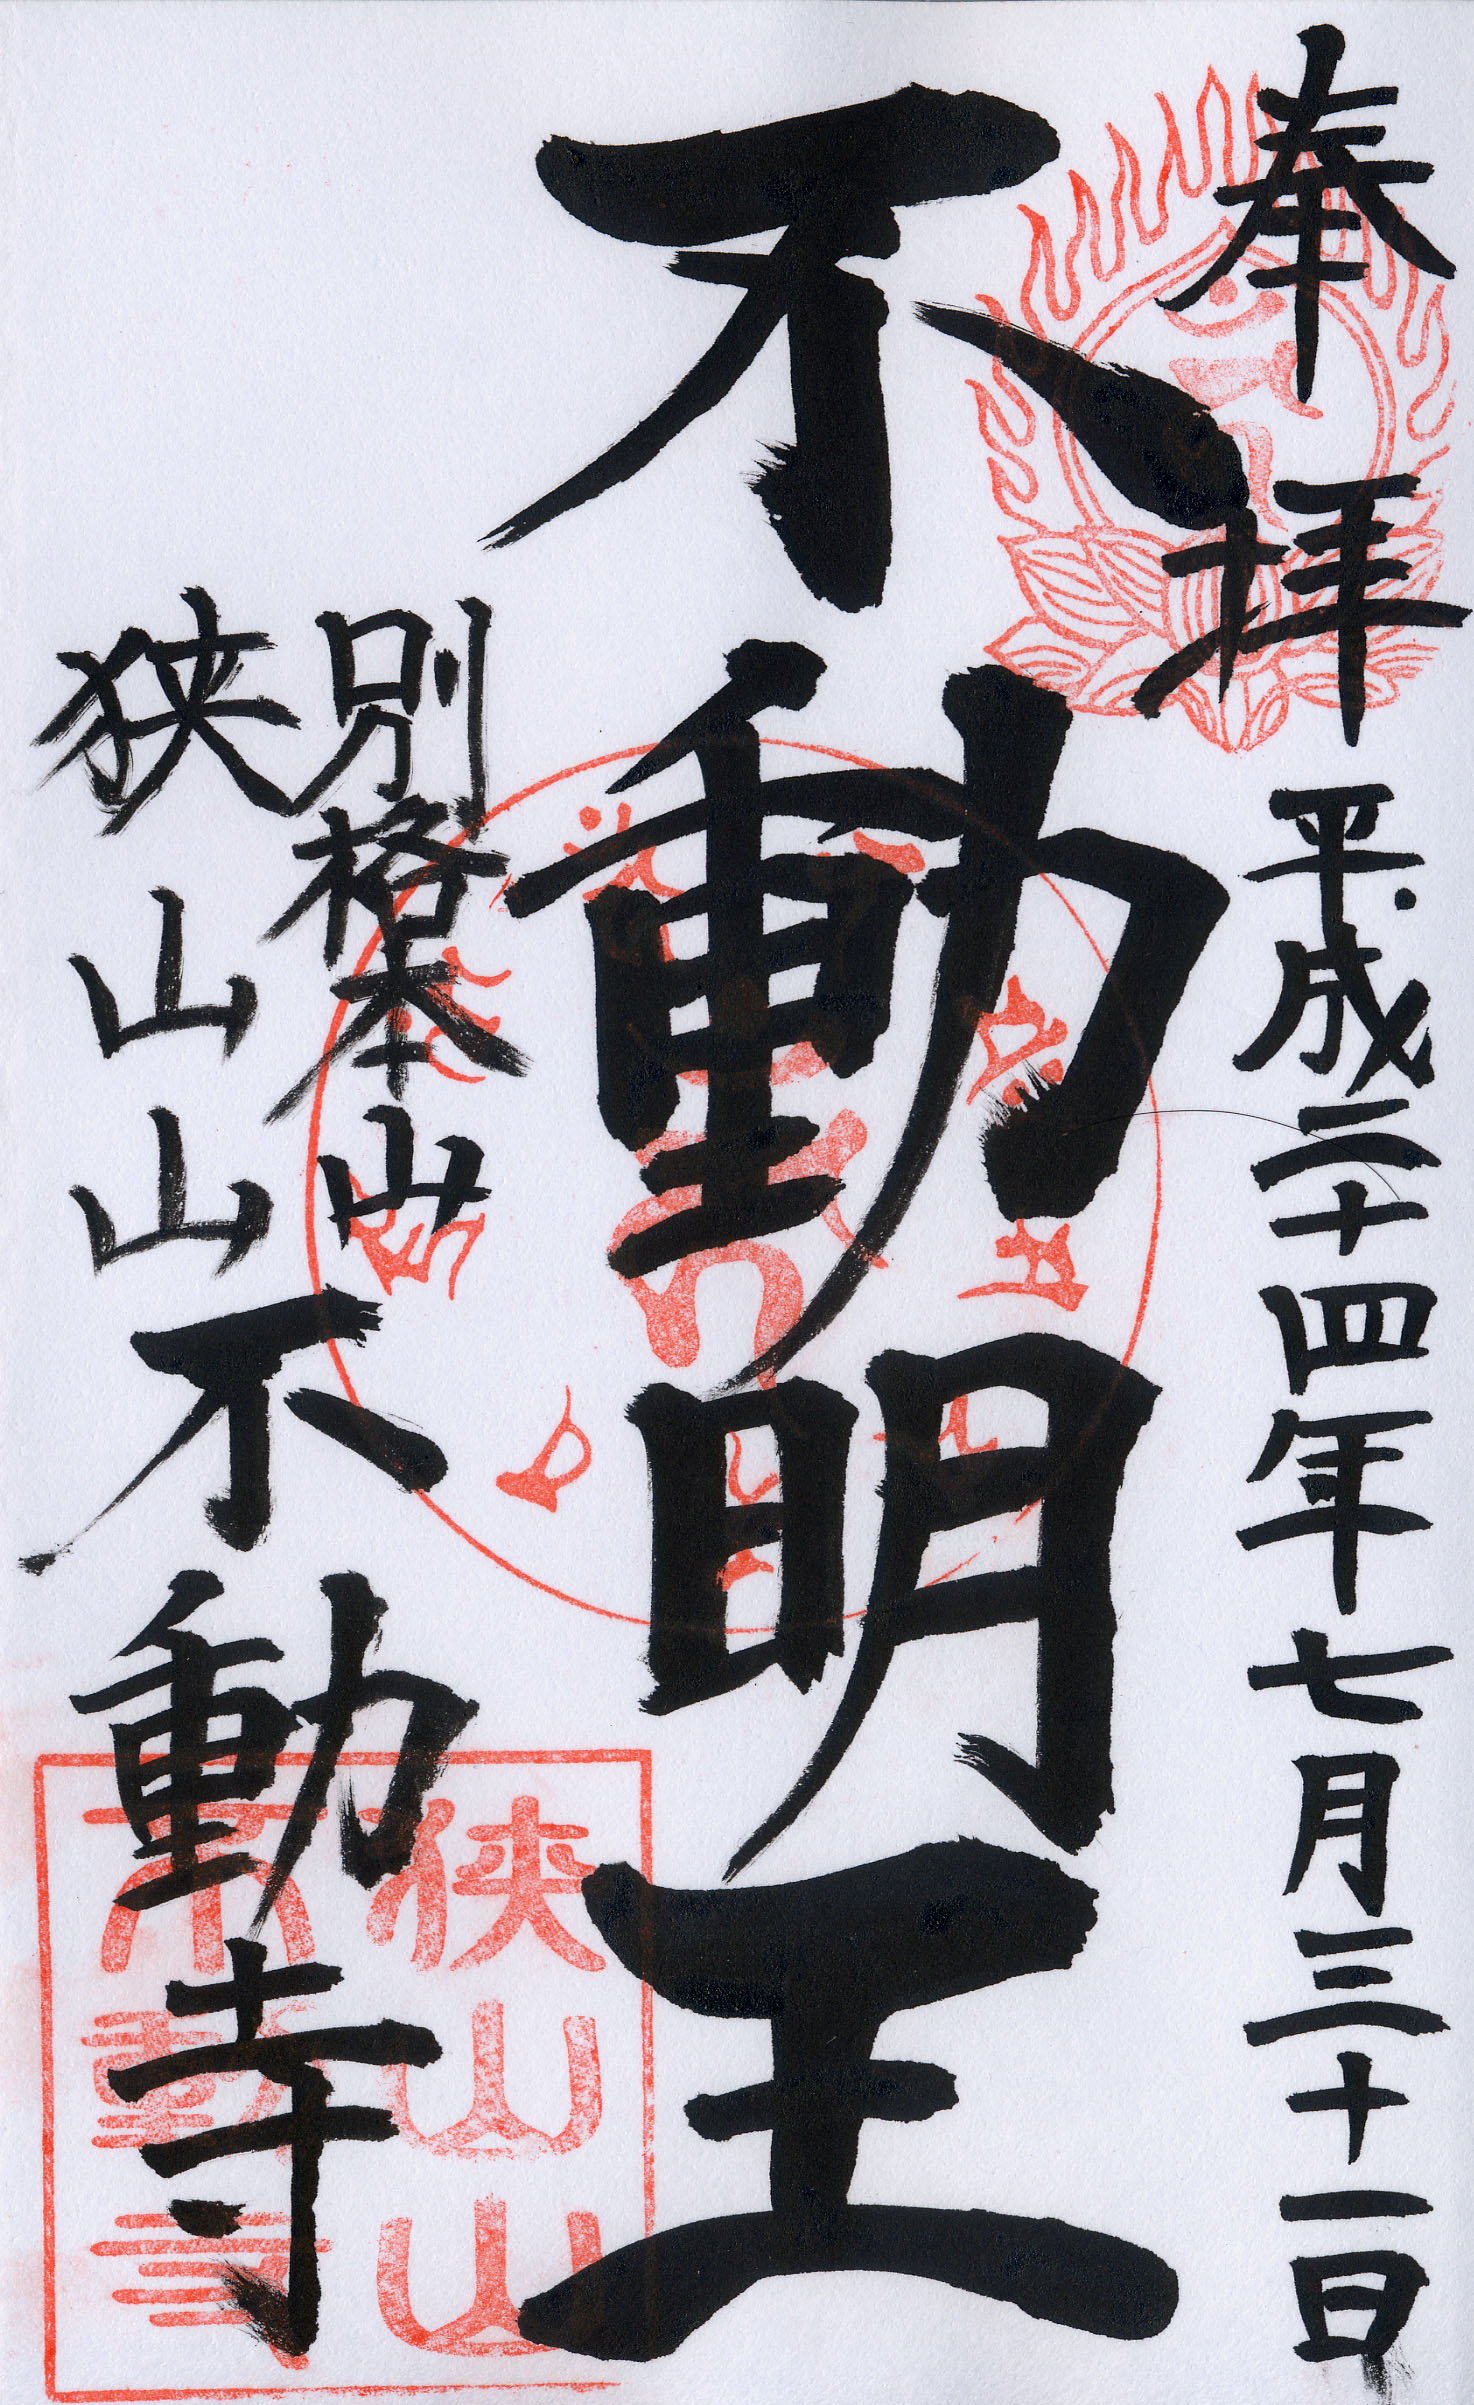 奉拝
平成二十四年七月三十一日
不動明王
別格本山
狭山山不動寺
狭山山
不動寺